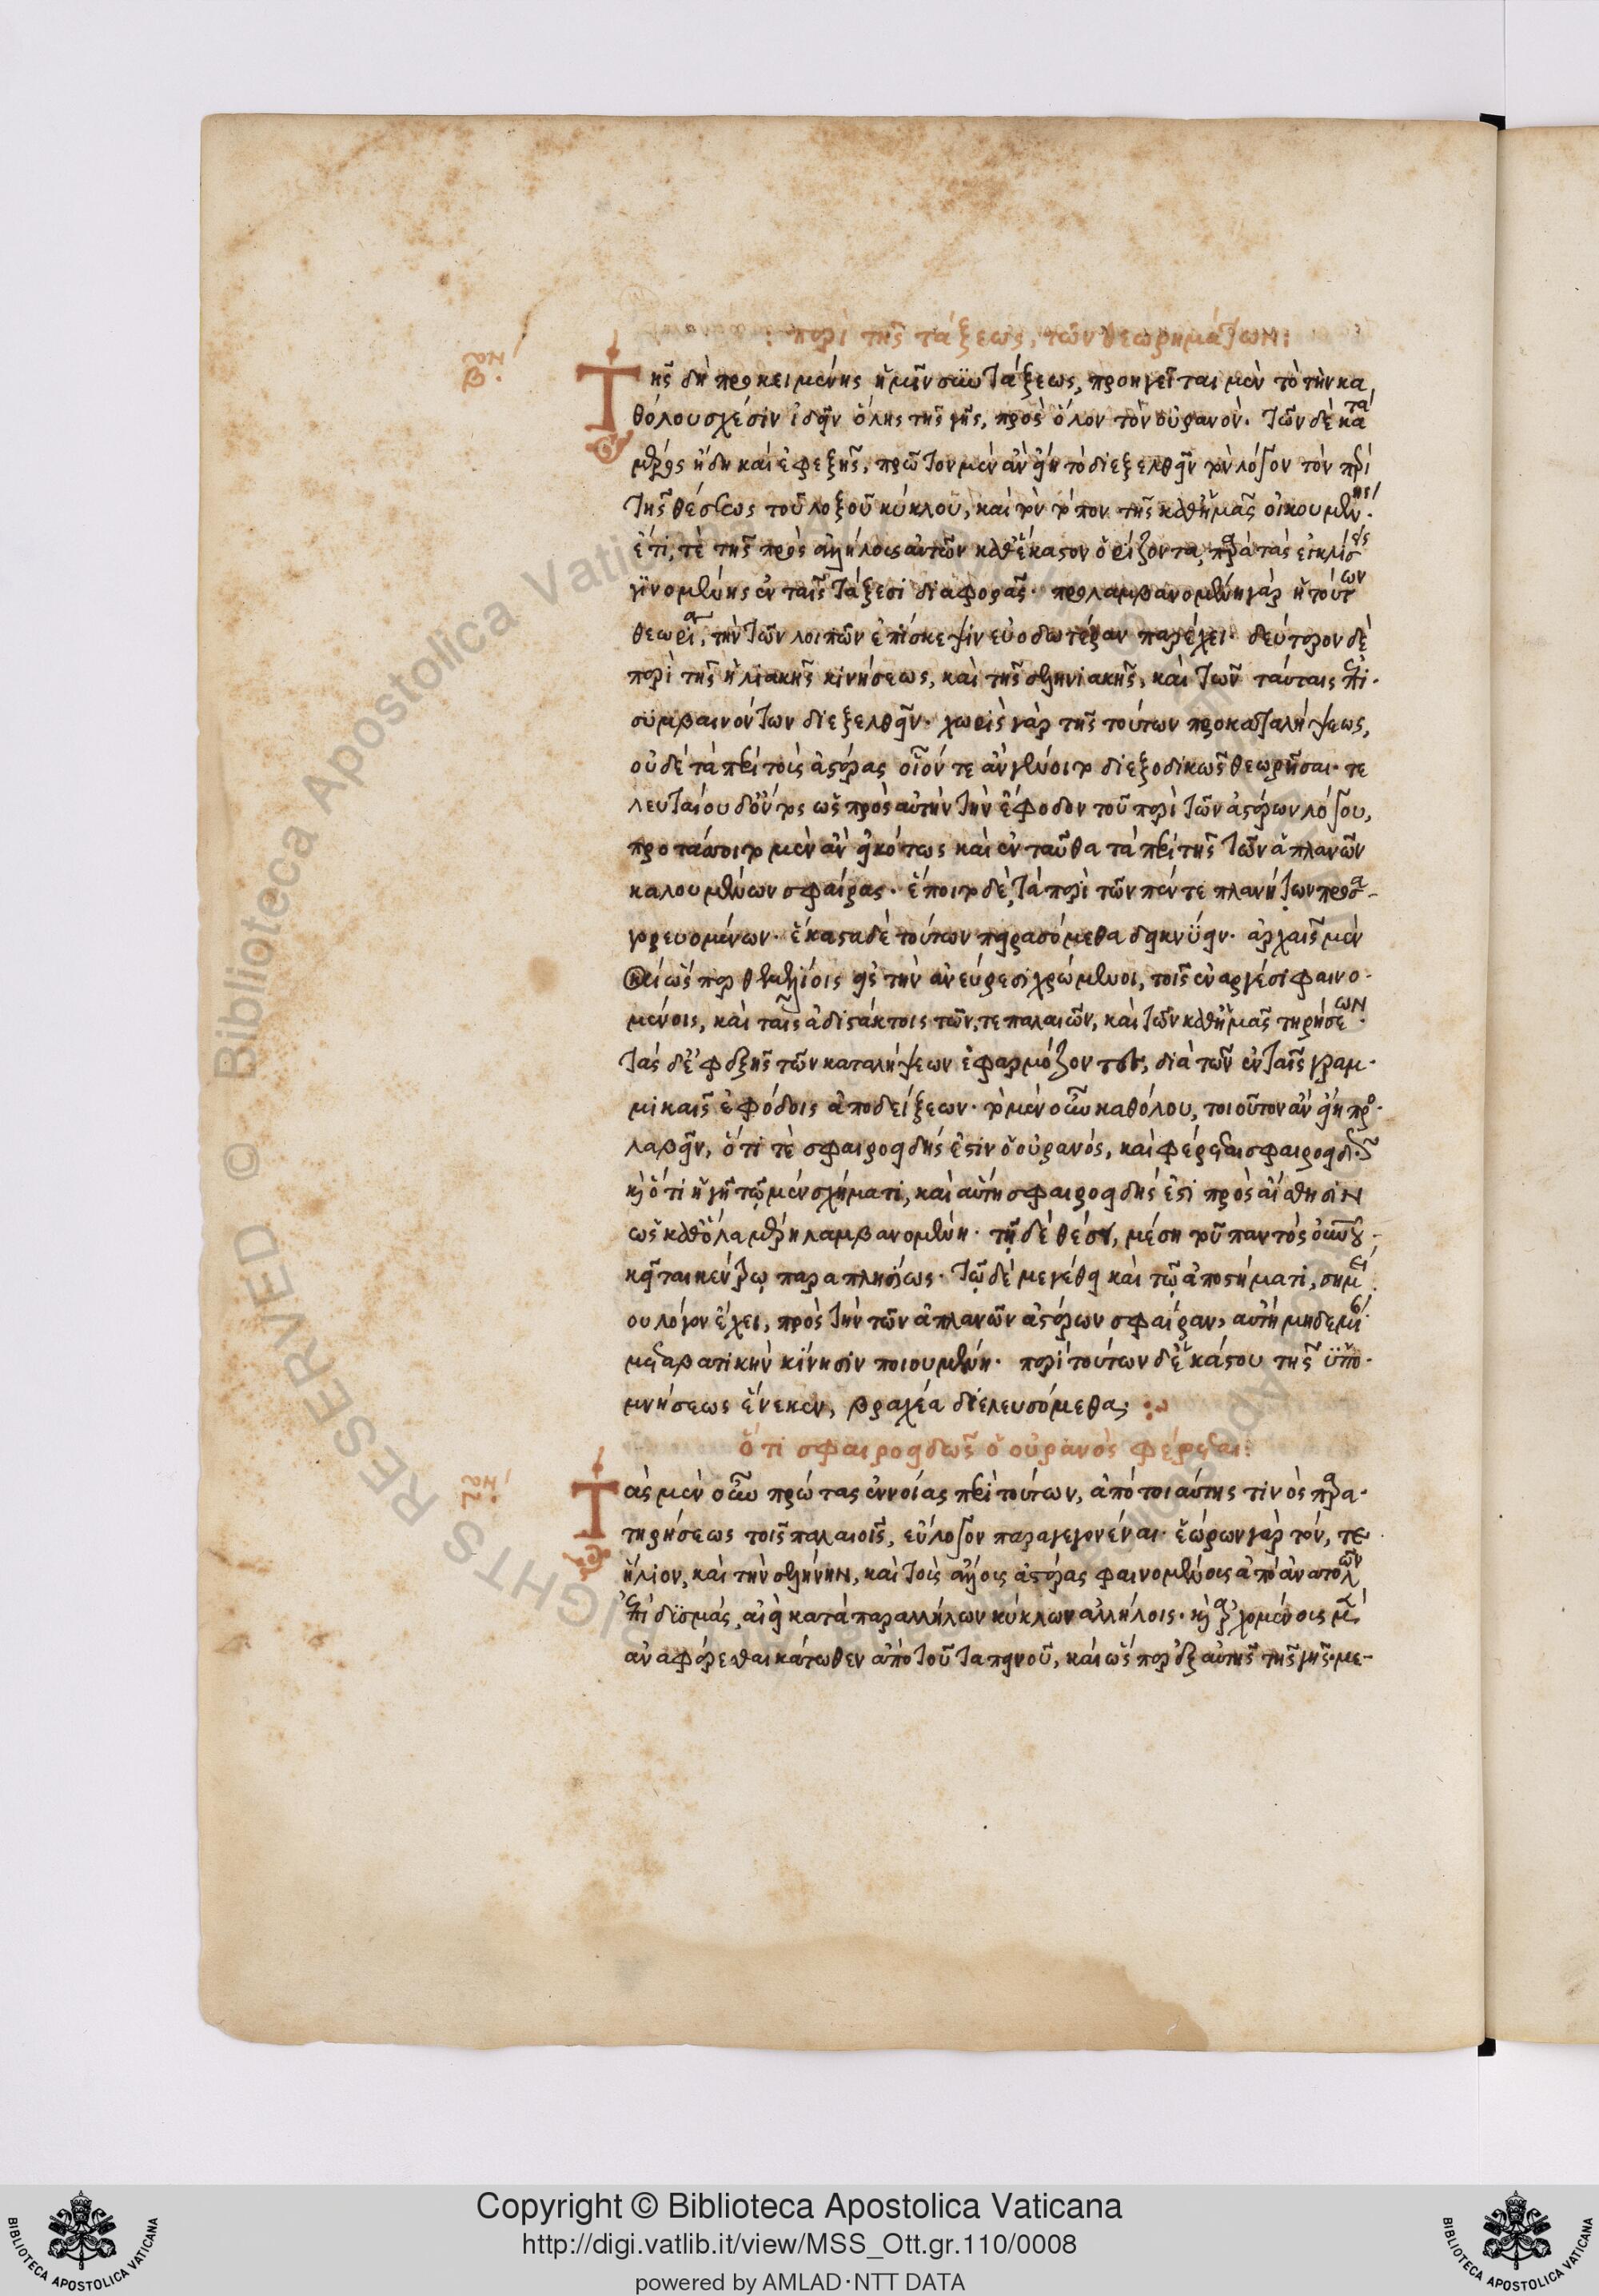 : περὶ τῆς τάξεως, τῶν θεωρημάτων:
Τῆς δὴ προκειμένης ἡμῖν συντάξεως, προηγεῖται μὲν τὸ τὴν κα
θόλου σχέσιν ἰδεῖν ὅλης τῆς γῆς, πρὸς ὅλον τὸν οὐρανόν. τῶν δὲ κατὰ
μέρος ἤδη καὶ ἐφεξῆς, πρῶτον μὲν ἂν εἴη τὸ διεξελθεῖν τὸν λόγον τὸν περὶ
τῆς θέσεως τοῦ λοξοῦ κύκλου, καὶ τὸν τόπον τῆς καθ' ἡμᾶς οἰκουμένης.
ἔτι, τὲ τῆς πρὸς ἀλλήλους αὐτῶν καθ' ἕκαστον ὁρίζοντα, παρὰ τὰς ἐγκλίσεις
γινομένης ἐν ταῖς τάξεσι διαφορᾶς. προλαμβανομένη γὰρ ἡ τούτων
θεωρία, τὴν τῶν λοιπῶν ἐπίσκεψιν εὐοδωτέραν παρέχει. δεύτερον δὲ
περὶ τῆς ἡλιακῆς κινήσεως, καὶ τῆς σεληνιακῆς, καὶ τῶν ταύταις ἐπι·
συμβαινόντων διεξελθεῖν. χωρὶς γὰρ τῆς τούτων προκαταλήψεως,
οὐδὲ τὰ περὶ τοὺς ἀστέρας οἷόν τε ἂν γένοιτο διεξοδικῶς θεωρῆσαι. τε
λευταίου δ' ὄντος ὡς πρὸς αὐτὴν τὴν ἔφοδον τοῦ περὶ τῶν ἀστέρων λόγου,
προτάσσοιτο μὲν ἂν εἰκότως καὶ ἐνταῦθα τὰ περὶ τῆς τῶν ἀπλανῶν
καλουμένων σφαίρας. ἕποιτο δὲ, τὰ περὶ τῶν πέντε πλανήτων προσα-
γορευομένων. ἕκαστα δὲ τούτων πειρασόμεθα δεικνύειν. ἀρχαῖς μὲν
καὶ ὥσπερ θεμελίοις εἰς τὴν ἀνεύρεσι χρώμενοι, τοῖς ἐναργέσι φαινο·
μένοις, καὶ ταῖς ἀδιστάκτοις τῶν, τε παλαιῶν, καὶ τῶν καθ' ἡμᾶς τηρήσεων.
τὰς δ' ἐφεξῆς τῶν καταλήψεων ἐφαρμόζοντες, διὰ τῶν ἐν ταῖς γραμ·
μικαῖς ἐφόδοις ἀποδείξεων. τὸ μὲν οὖν καθόλου, τοιοῦτον ἂν εἴη προ·
λαβεῖν, ὅτι τὲ σφαιροειδής ἐστιν ὁ οὐρανός, καὶ φέρεται σφαιροειδῶς
κὶ ὅτι ἡ γῆ τῷ μὲν σχήματι, καὶ αὐτὴ σφαιροειδής ἐστι πρὸς αἴσθησιν
ὡς καθ' ὅλα μέρη λαμβανομένη. τῇ δὲ θέσει, μέση τοῦ παντὸς οὐνοῦ·
κεῖται κέντρῳ παραπλησίως. τῷ δὲ μεγέθει καὶ τῷ ἀποστήματι, σημεί
ου λόγον ἔχει, πρὸς τὴν τῶν ἀπλανῶν ἀστέρων σφαῖραν, αὐτὴ μηδεμίαν
μεταβατικὴν κίνησιν ποιουμένη. περὶ τούτων δ' ἑκάστου τῆς ὑπο·
μνήσεως ἕνεκεν, βραχέα διελευσόμεθα:
ὅτι σφαιροειδῶς ὁ οὐρανὸς φέρεται:
Τὰς μὲν οὖν πρώτας ἐννοίας περὶ τούτων, ἀπὸ τοιαύτης τινὸς παρα·
τηρήσεως τοῖς παλαιοῖς, εὔλογον παραγεγονέναι. ἑώρων γὰρ τόν, τε
ἥλιον, καὶ τὴν σελήνην, καὶ τοὺς ἄλλους ἀστέρας φαινομένους ἀπὸ ἀνατολῶν
ἐπὶ δυσμάς, αἰεὶ κατὰ παραλλήλων κύκλων ἀλλήλοις. κὶ ἀρχομένους μὲν
ἀναφέρεσθαι κάτωθεν ἀπὸ τοῦ ταπεινοῦ, καὶ ὥσπερ ἐξ αὐτῆς τῆς γῆς. με-
Copyright © Biblioteca Apostolica Vaticana
http://digi.vatlib.it/view/MSS_Ott.gr.110/0008
powered by AMLAD·NTT DATA
BIBLIOTECA APOSTOLICA VATICANA
BIBLIOTECA APOSTOLICA VATICANA